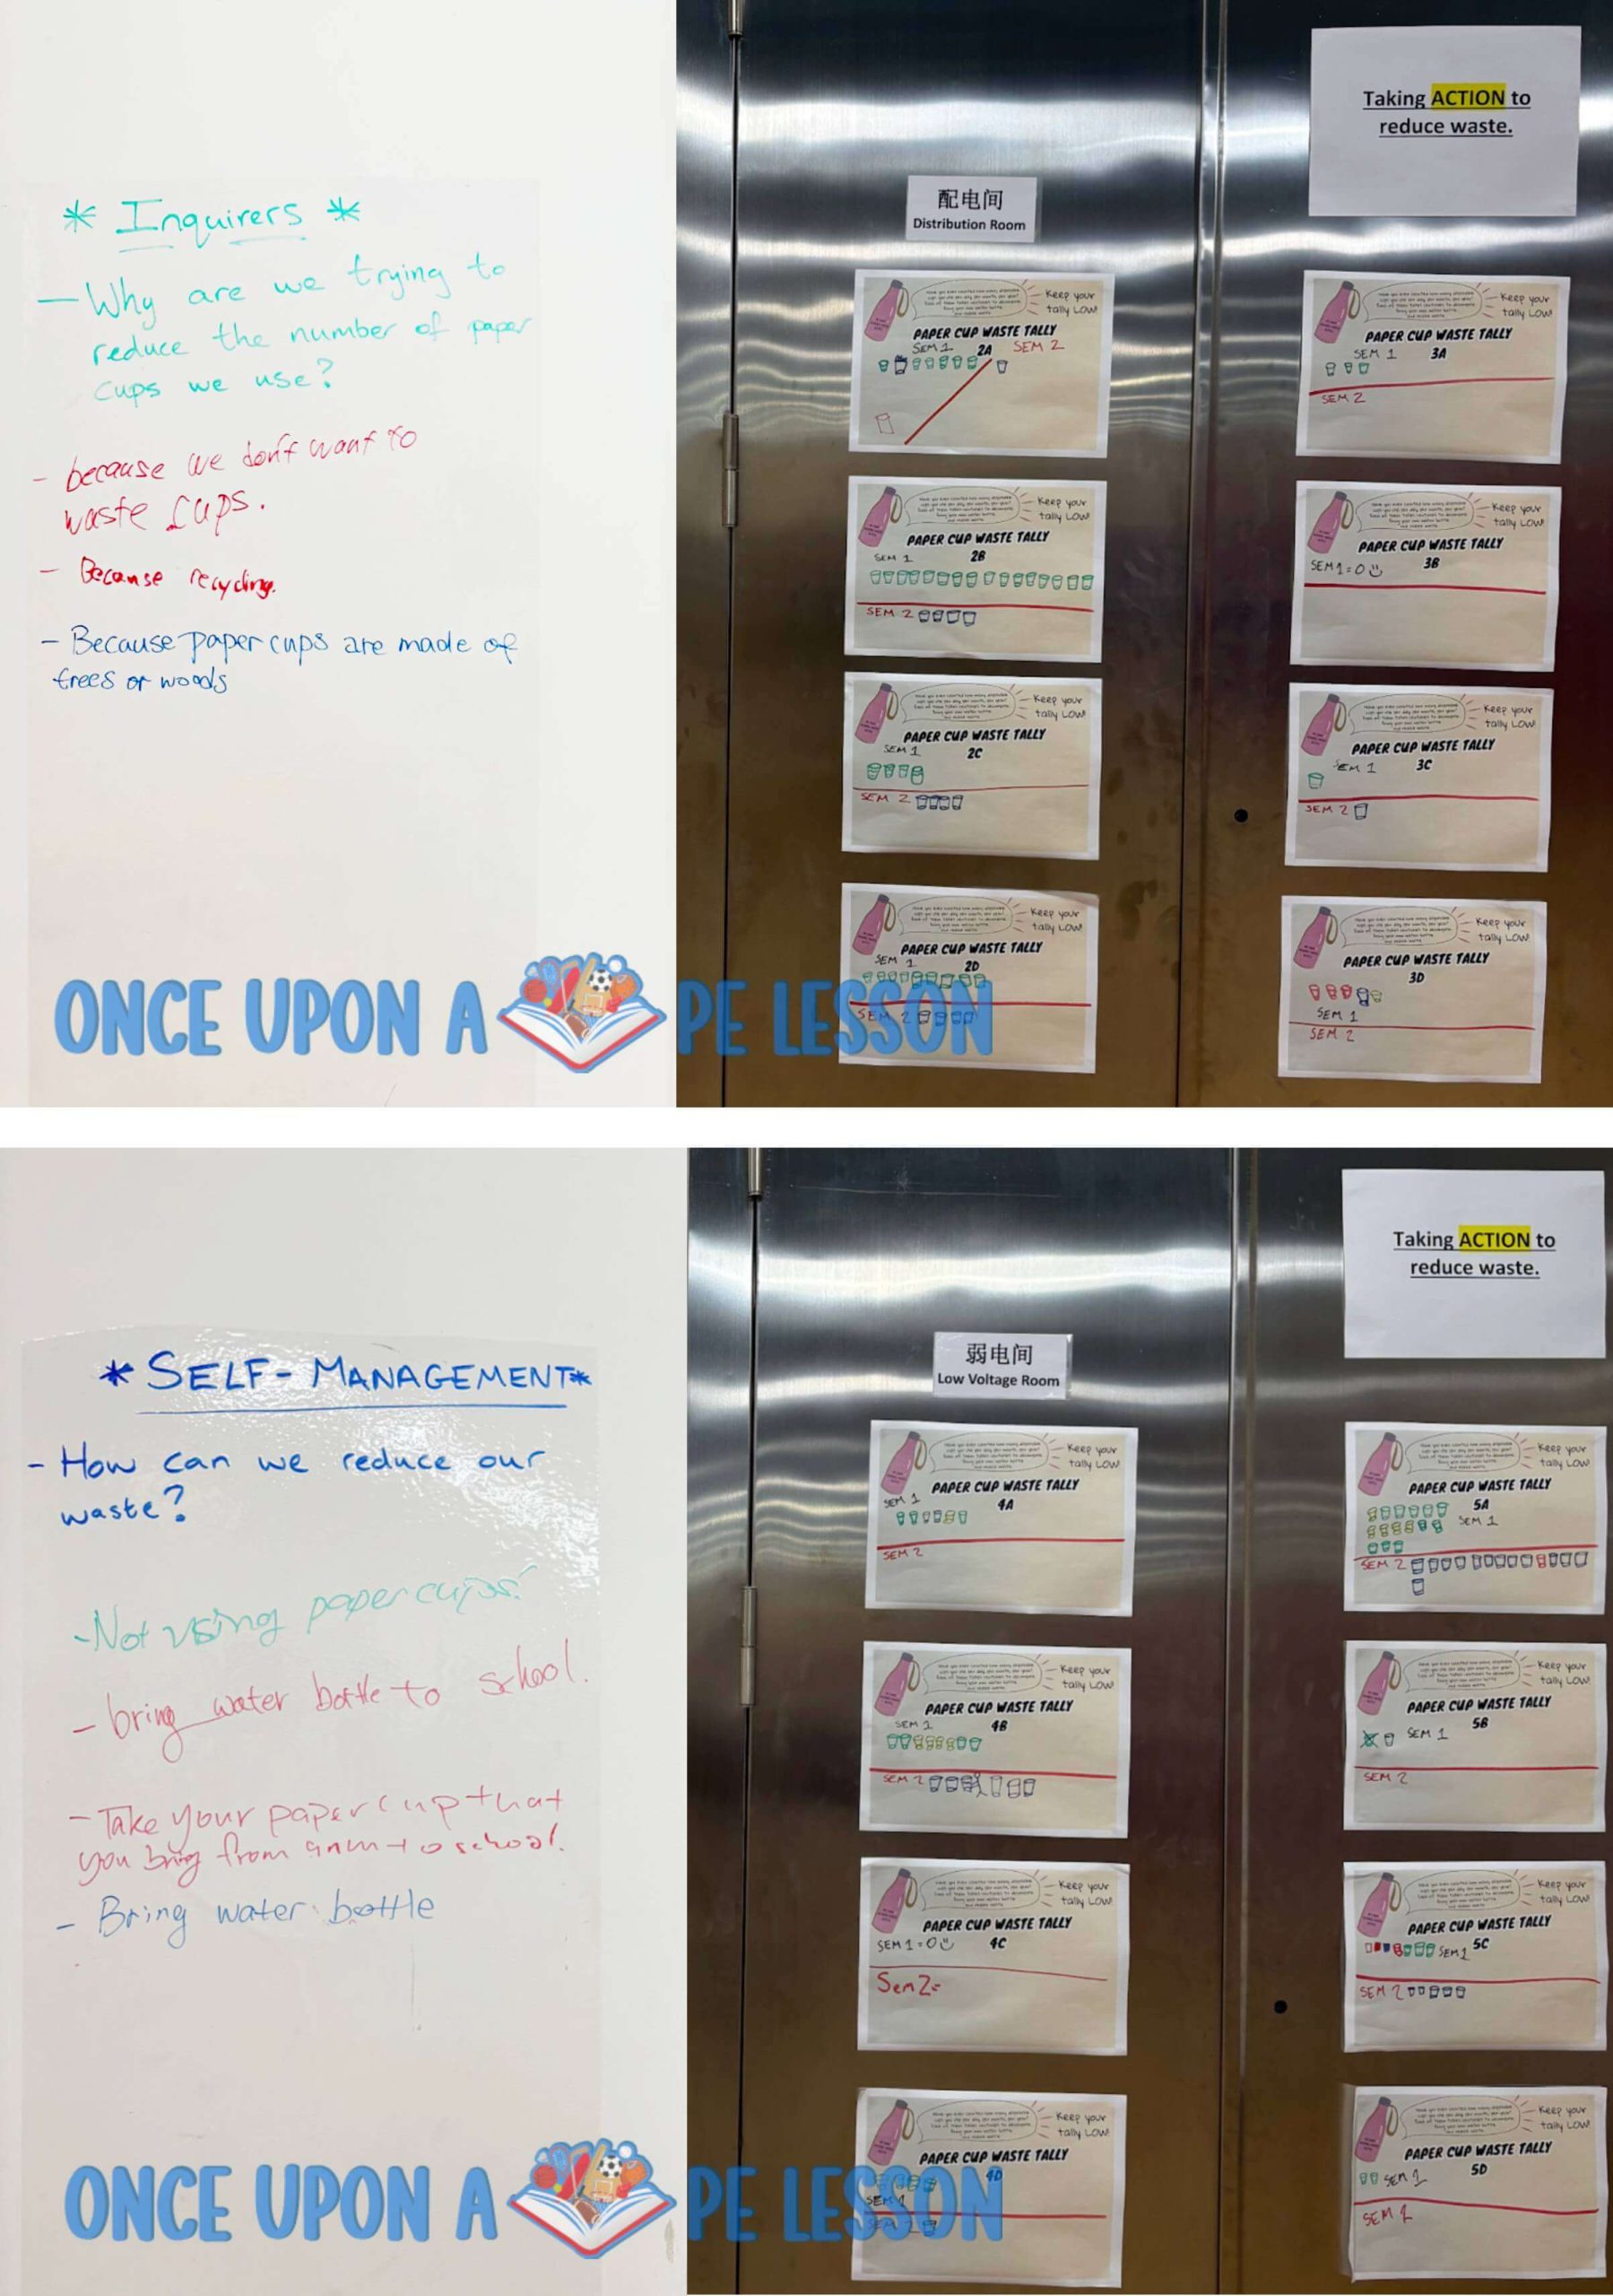 * Inquirers *
— Why are we trying to
reduce the number of paper
cups we use?
- because we don't want to
waste cups.
- Because recycling.
- Because paper cups are made of
trees or woods
Taking ACTION to
reduce waste.
配电间
Distribution Room
Keep your
tally LOW!
PAPER CUP WASTE TALLY
SEM 1 2A SEM 2
Keep your
tally LOW!
PAPER CUP WASTE TALLY
SEM 1 3A
SEM 2
Keep your
tally LOW!
PAPER CUP WASTE TALLY
SEM 1 2B
SEM 2
Keep your
tally LOW!
PAPER CUP WASTE TALLY
SEM 1=0 3B
Keep your
tally LOW!
PAPER CUP WASTE TALLY
SEM 1 2C
SEM 2
Keep your
tally LOW!
PAPER CUP WASTE TALLY
SEM 1 3C
SEM 2
Keep your
tally LOW!
PAPER CUP WASTE TALLY
SEM 1 2D
SEM 2
Keep your
tally LOW!
PAPER CUP WASTE TALLY
3D
SEM 1
SEM 2
ONCE UPON A PE LESSON
* SELF-MANAGEMENT*
- How can we reduce our
waste?
- Not using paper cups!
- bring water bottle to school.
- Take your paper cup that
you bring from to school.
- Bring water bottle
Taking ACTION to
reduce waste.
弱电间
Low Voltage Room
Keep your
tally LOW!
PAPER CUP WASTE TALLY
SEM 1 4A
SEM 2
Keep your
tally LOW!
PAPER CUP WASTE TALLY
5A
SEM 1
SEM 2
Keep your
tally LOW!
PAPER CUP WASTE TALLY
SEM 1 4B
SEM 2
Keep your
tally LOW!
PAPER CUP WASTE TALLY
SEM 1 5B
SEM 2
Keep your
tally LOW!
PAPER CUP WASTE TALLY
SEM 1=0 4C
Sem 2=
Keep your
tally LOW!
PAPER CUP WASTE TALLY
SEM 1 5C
SEM 2
Keep your
tally LOW!
PAPER CUP WASTE TALLY
4D
SEM 1
SEM 2
Keep your
tally LOW!
PAPER CUP WASTE TALLY
SEM 1 5D
SEM 2
ONCE UPON A PE LESSON